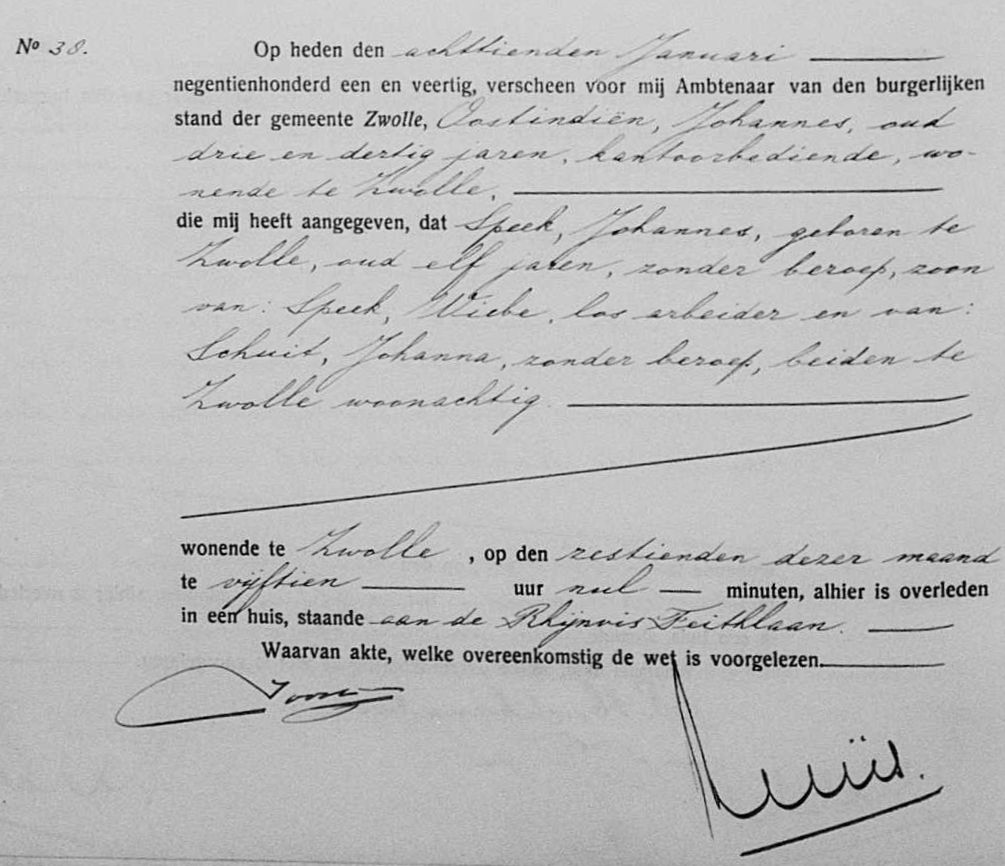 Nº 38. Op heden den achttienden Januari
negentienhonderd een en veertig, verscheen voor mij Ambtenaar van den burgerlijken
stand der gemeente Zwolle, Oostindiën, Johannes, oud
drie en dertig jaren, kantoorbediende, wo-
nende te Zwolle,
die mij heeft aangegeven, dat Speek, Johannes, geboren te
Zwolle, oud elf jaren, zonder beroep, zoon
van: Speek, Wiebe, los arbeider en van:
Schuit, Johanna, zonder beroep, beiden te
Zwolle woonachtig.
wonende te Zwolle, op den zestienden dezer maand
te vijftien uur nul minuten, alhier is overleden
in een huis, staande aan de Rhijnvis Feithlaan.
Waarvan akte, welke overeenkomstig de wet is voorgelezen.